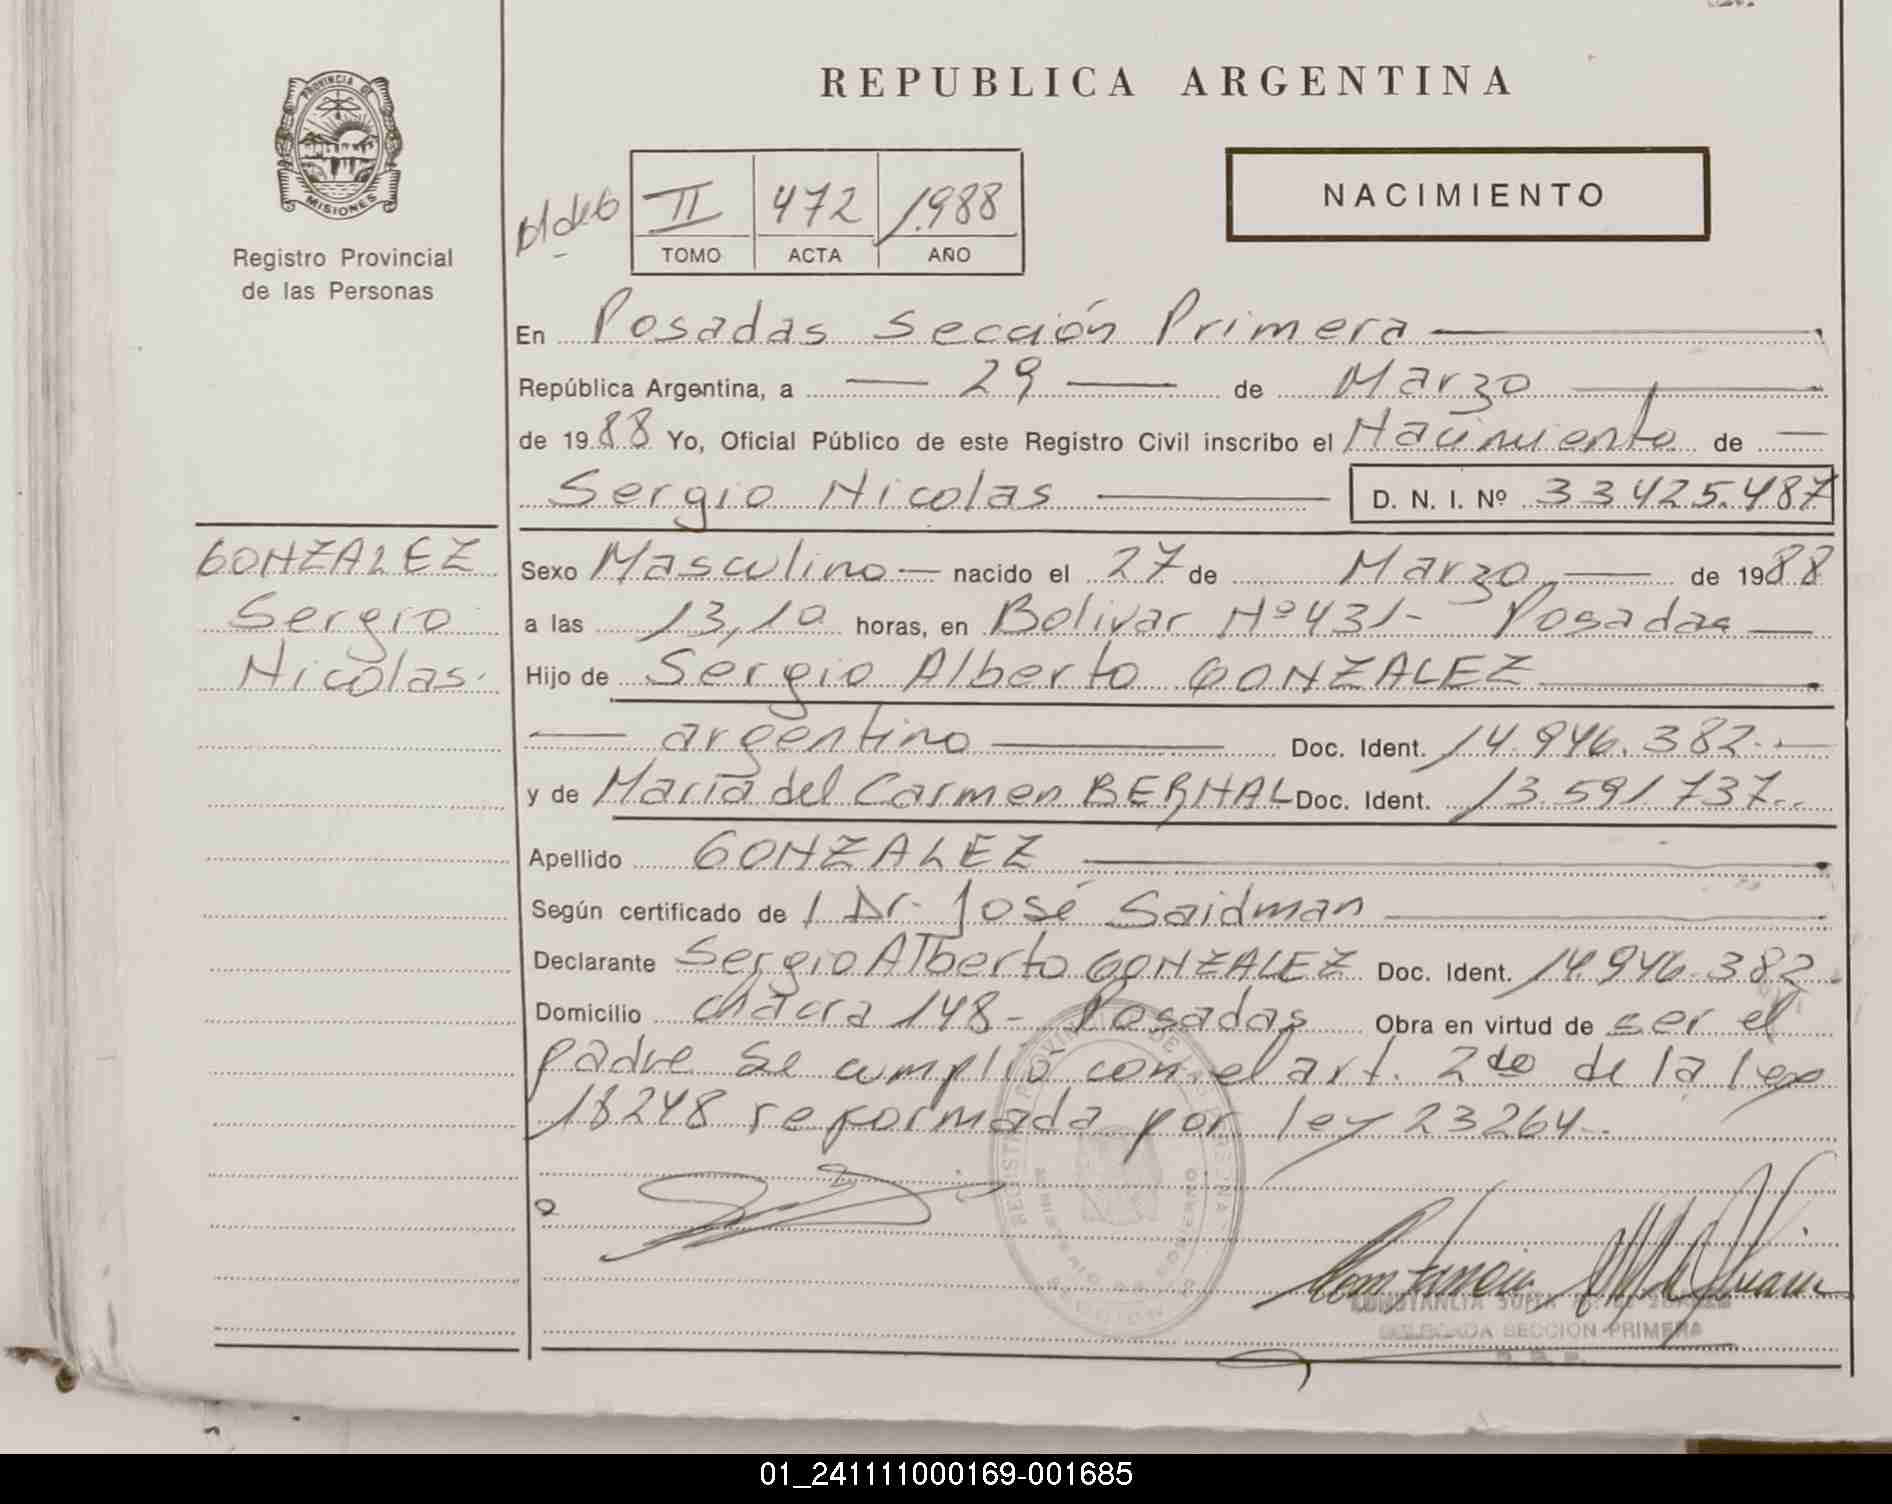 REPUBLICA ARGENTINA
PROVINCIA DE
MISIONES
Registro Provincial
de las Personas
II 472 1988
TOMO ACTA AÑO
NACIMIENTO
En Posadas Sección Primera
República Argentina, a 29 de Marzo
de 1988 Yo, Oficial Público de este Registro Civil inscribo el Nacimiento de
Sergio Nicolas D. N. I. Nº 33.425.487
GONZALEZ
Sergio
Nicolas.
Sexo Masculino nacido el 27 de Marzo de 1988
a las 13,10 horas, en Bolivar Nº 431- Posadas
Hijo de Sergio Alberto GONZALEZ
argentino Doc. Ident. 14.946.382.-
y de María del Carmen BERNAL Doc. Ident. 13.591.737..
Apellido GONZALEZ
Según certificado de Dr. José Saidman
Declarante Sergio Alberto GONZALEZ Doc. Ident. 14.946.382.
Domicilio chacra 148- Posadas Obra en virtud de ser el
padre se cumplió con el art. 2do de la ley
18248 reformada por ley 23264..
CONSTANCIA
DELEGADA SECCION PRIMERA
01_241111000169-001685